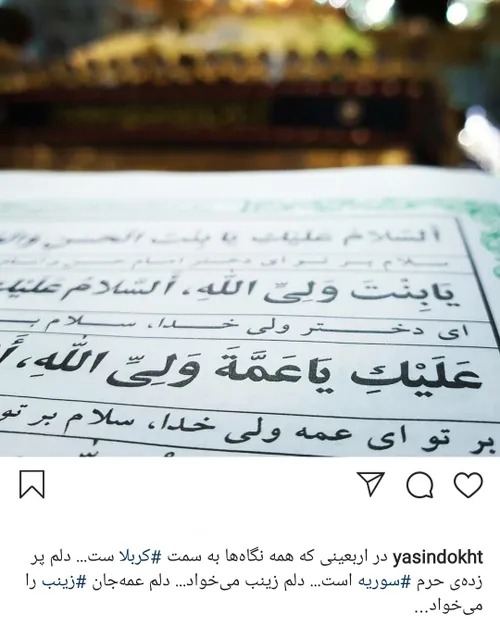 اَلسَّلامُ عَلَيْكِ يا بِنْتَ الْحَسَنِ
سلام بر تو ای دختر امام حسن
يَابِنْتَ وَلِيِّ اللّهِ، اَلسَّلامُ عَلَيْكِ
ای دختر ولی خدا، سلام بر
عَلَيْكِ يَاعَمَّةَ وَلِيِّ اللّهِ،
بر تو ای عمه ولی خدا، سلام بر تو
yasindokht در اربعینی که همه نگاه‌ها به سمت #کربلا ست... دلم پر
زده‌ی حرم #سوریه است... دلم زینب می‌خواد... دلم عمه‌جان #زینب را
می‌خواد...